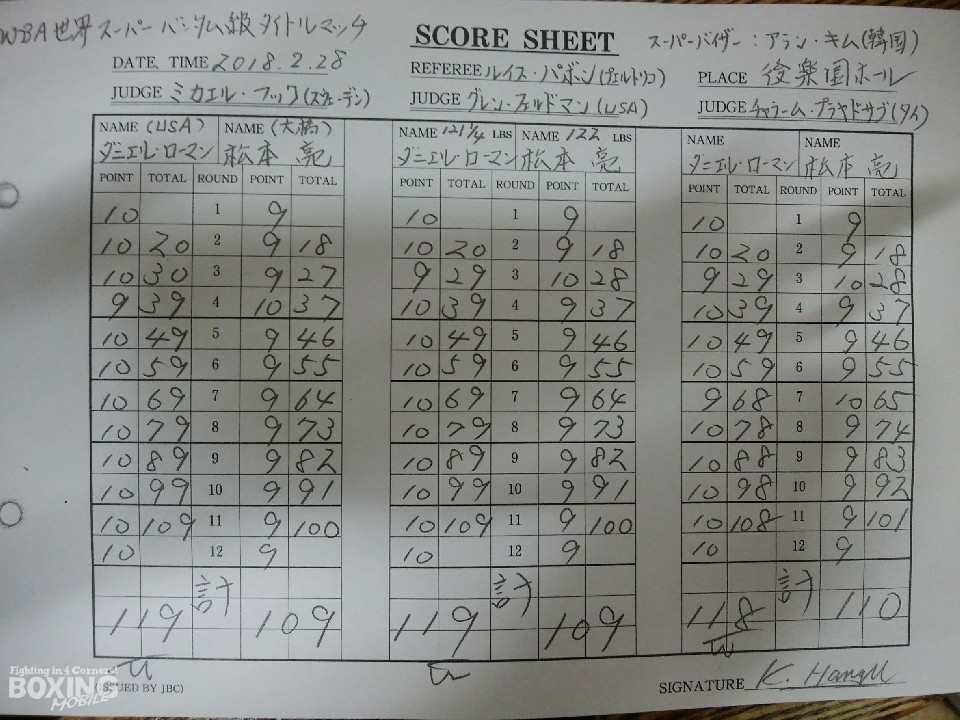 WBA世界スーパーバンタム級タイトルマッチ
SCORE SHEET
スーパーバイザー：アラン・キム(韓国)
DATE, TIME 2018.2.28
REFEREE ルイス・パボン(プエルトリコ)
PLACE 後楽園ホール
JUDGE ミカエル・フック(スウェーデン)
JUDGE グレン・フェルドマン(USA)
JUDGE チャラーム・プラヤドサブ(タイ)
NAME (USA) NAME (大橋) NAME 121 1/4 LBS NAME 122 LBS NAME NAME
ダニエル・ローマン 松本 亮 ダニエル・ローマン 松本 亮 ダニエル・ローマン 松本 亮
POINT TOTAL ROUND POINT TOTAL POINT TOTAL ROUND POINT TOTAL POINT TOTAL ROUND POINT TOTAL
10 1 9 10 1 9 10 1 9
10 20 2 9 18 10 20 2 9 18 10 20 2 9 18
10 30 3 9 27 9 29 3 10 28 9 29 3 10 28
9 39 4 10 37 10 39 4 9 37 10 39 4 9 37
10 49 5 9 46 10 49 5 9 46 10 49 5 9 46
10 59 6 9 55 10 59 6 9 55 10 59 6 9 55
10 69 7 9 64 10 69 7 9 64 9 68 7 10 65
10 79 8 9 73 10 79 8 9 73 10 78 8 9 74
10 89 9 9 82 10 89 9 9 82 10 88 9 9 83
10 99 10 9 91 10 99 10 9 91 10 98 10 9 92
10 109 11 9 100 10 109 11 9 100 10 108 11 9 101
10 12 9 10 12 9 10 12 9
119 計 109 119 計 109 118 計 110
Fighting in 4 Corners!
BOXING
MOBILE
(ISSUED BY JBC)
SIGNATURE K.